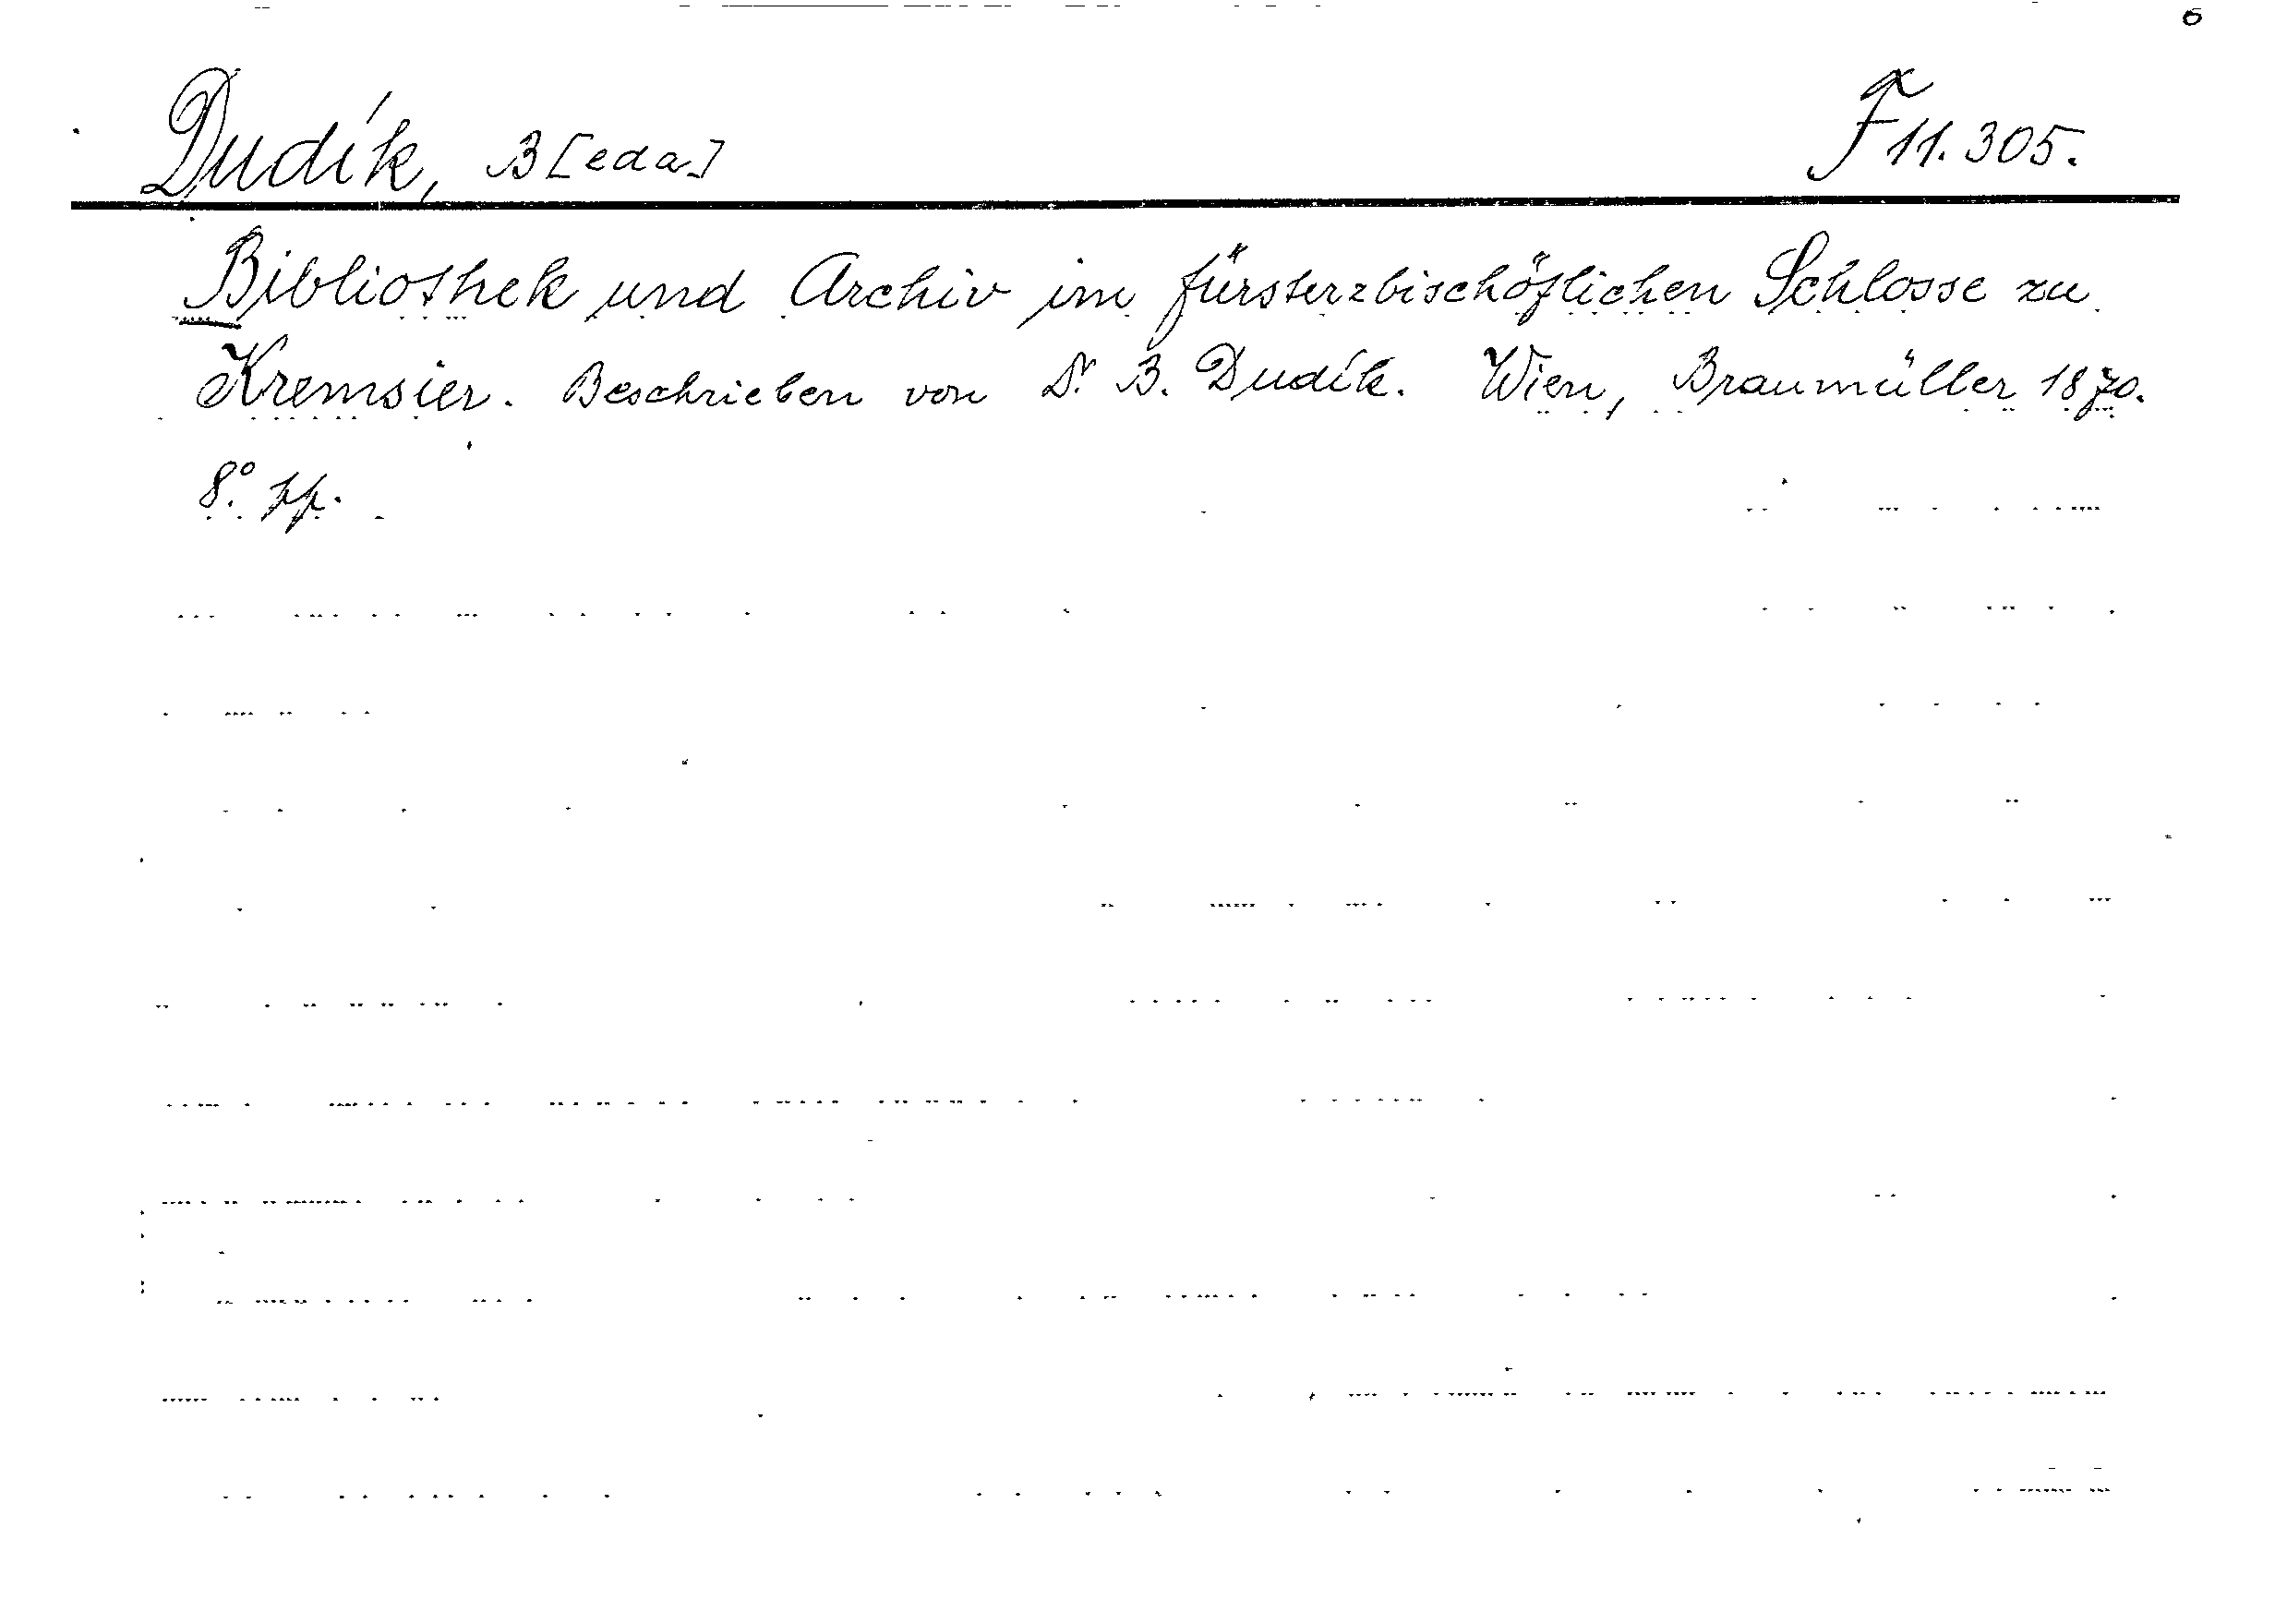 Dudík, B[eda] F 11.305.
Bibliothek und Archiv im fürsterzbischöflichen Schlosse zu
Kremsier. Beschrieben von Dr. B. Dudík. Wien, Braumüller 1870.
8°. pp.